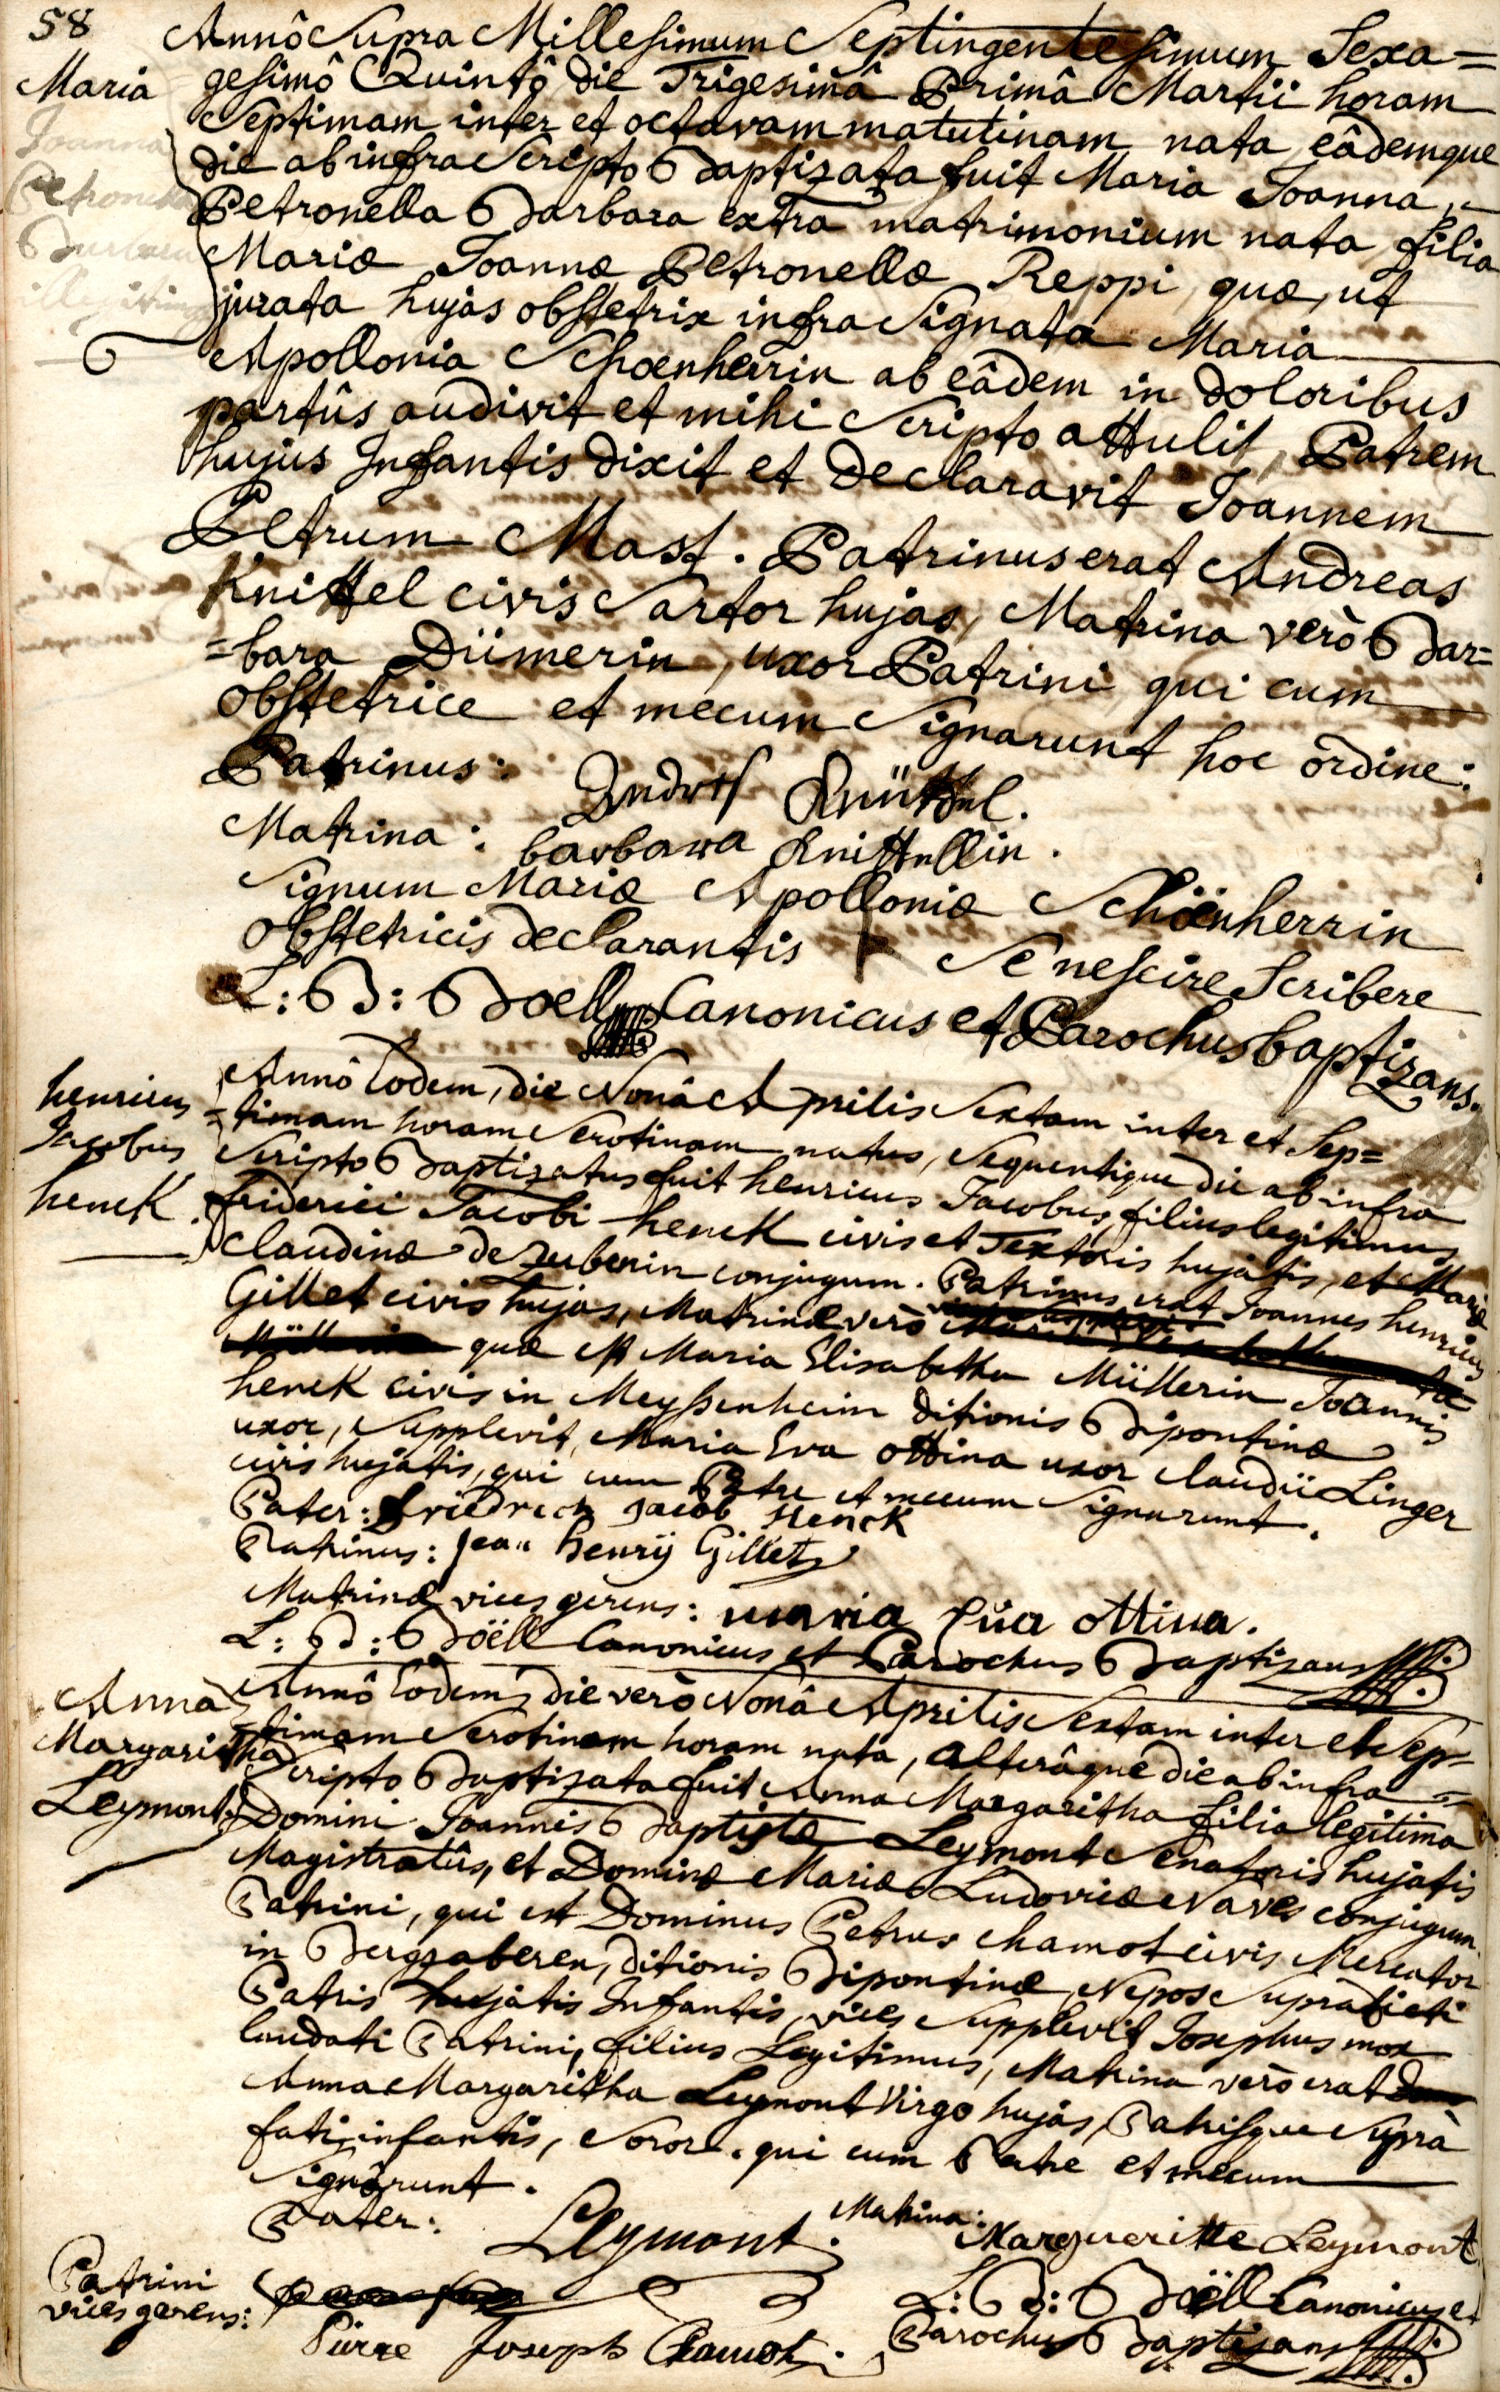 58
Annô Supra Millesimum Septingentesimum Sexa=
Maria
gesimô Quintô die Trigesimâ Primâ Martii horam
Septimam inter et octavam matutinam nata, eâdemque
Joanna
die ab infra Scripto Baptizata fuit Maria Joanna
Petronella
Petronella Barbara extra matrimonium nata, filia
Barbara
Mariæ Joannæ Petronellæ Reppi, quæ, ut
illegitima
jurata hujas obstetrix infra Signata Maria
Apollonia Schoenherrin ab eâdem in doloribus
partûs audivit et mihi Scripto attulit, Patrem
hujus Infantis dixit et declaravit Joannem
Petrum Mast. Patrinus erat Andreas
Knittel civis Sartor hujas, Matrina verò Bar=
=bara Dümerin, uxor Patrini qui cum
Obstetrice et mecum Signarunt hoc ordine:
Patrinus: Andres Knüttel.
Matrina: barbara Knittellin.
Signum Mariæ Apolloniæ Schöenherrin
Obstetricis declarantis + Se nescire Scribere
L: B: Boell Canonicus et Parochus baptizans.
henricus
Jacobus
henck.
Annô Eodem, die Nonâ Aprilis Sextam inter et Sep=
=timam horam Serotinam natus, Sequentique die ab infra
Scripto Baptizatus fuit henricus Jacobus, filius legitimus
friderici Jacobi henck civis et Textoris hujatis, et Mariæ
Claudinæ de Zuberin conjugum. Patrinus erat Joannes henricus
Gillet civis hujas, Matrinæ verò
quæ est Maria Elisabetha Müllerin Joannis
henck civis in Meyssenheim ditionis Bipontinæ
uxor, Supplevit, Maria Eva Ottina uxor Claudii Linger
civis hujatis, qui cum Patre et mecum Signarunt.
Pater: Friedrich Jacob Henck
Patrinus: Jean Henrÿ Gillet
Matrinæ vices gerens: maria Eva ottina.
L: B: Boëll Canonicus et Parochus Baptizans
Anna
Margaritha
Leymont
Annô Eodem, die verò Nonâ Aprilis Sextam inter et Sep=
=timam Serotinam horam nata, alterâque die ab infra
Scripto Baptizata fuit Anna Margaritha filia legitima
Domini Joannis Baptistæ Leymont Senatoris hujatis
Magistratûs, et Dominæ Mariæ Ludovicæ Naves conjugum.
Patrini, qui est Dominus Petrus Chamot civis Mercator
in Bergzaberen, ditionis Bipontinæ, Nepos Supradicti
Patris hujatis Infantis, vices Supplevit Josephus mox
laudati Patrini, filius Legitimus, Matrina verò erat
Anna Margaritha Leymont Virgo hujas, Patrisque Suprà
fati infantis, Soror. qui cum Patre et mecum
Signârunt.
Pater: Leymont. Matrina: Margueritte Leymont
Patrini
vices gerens:
Pierre Joseph Chamot.
L: B: Boëll Canonicus et
Parochus Baptizans